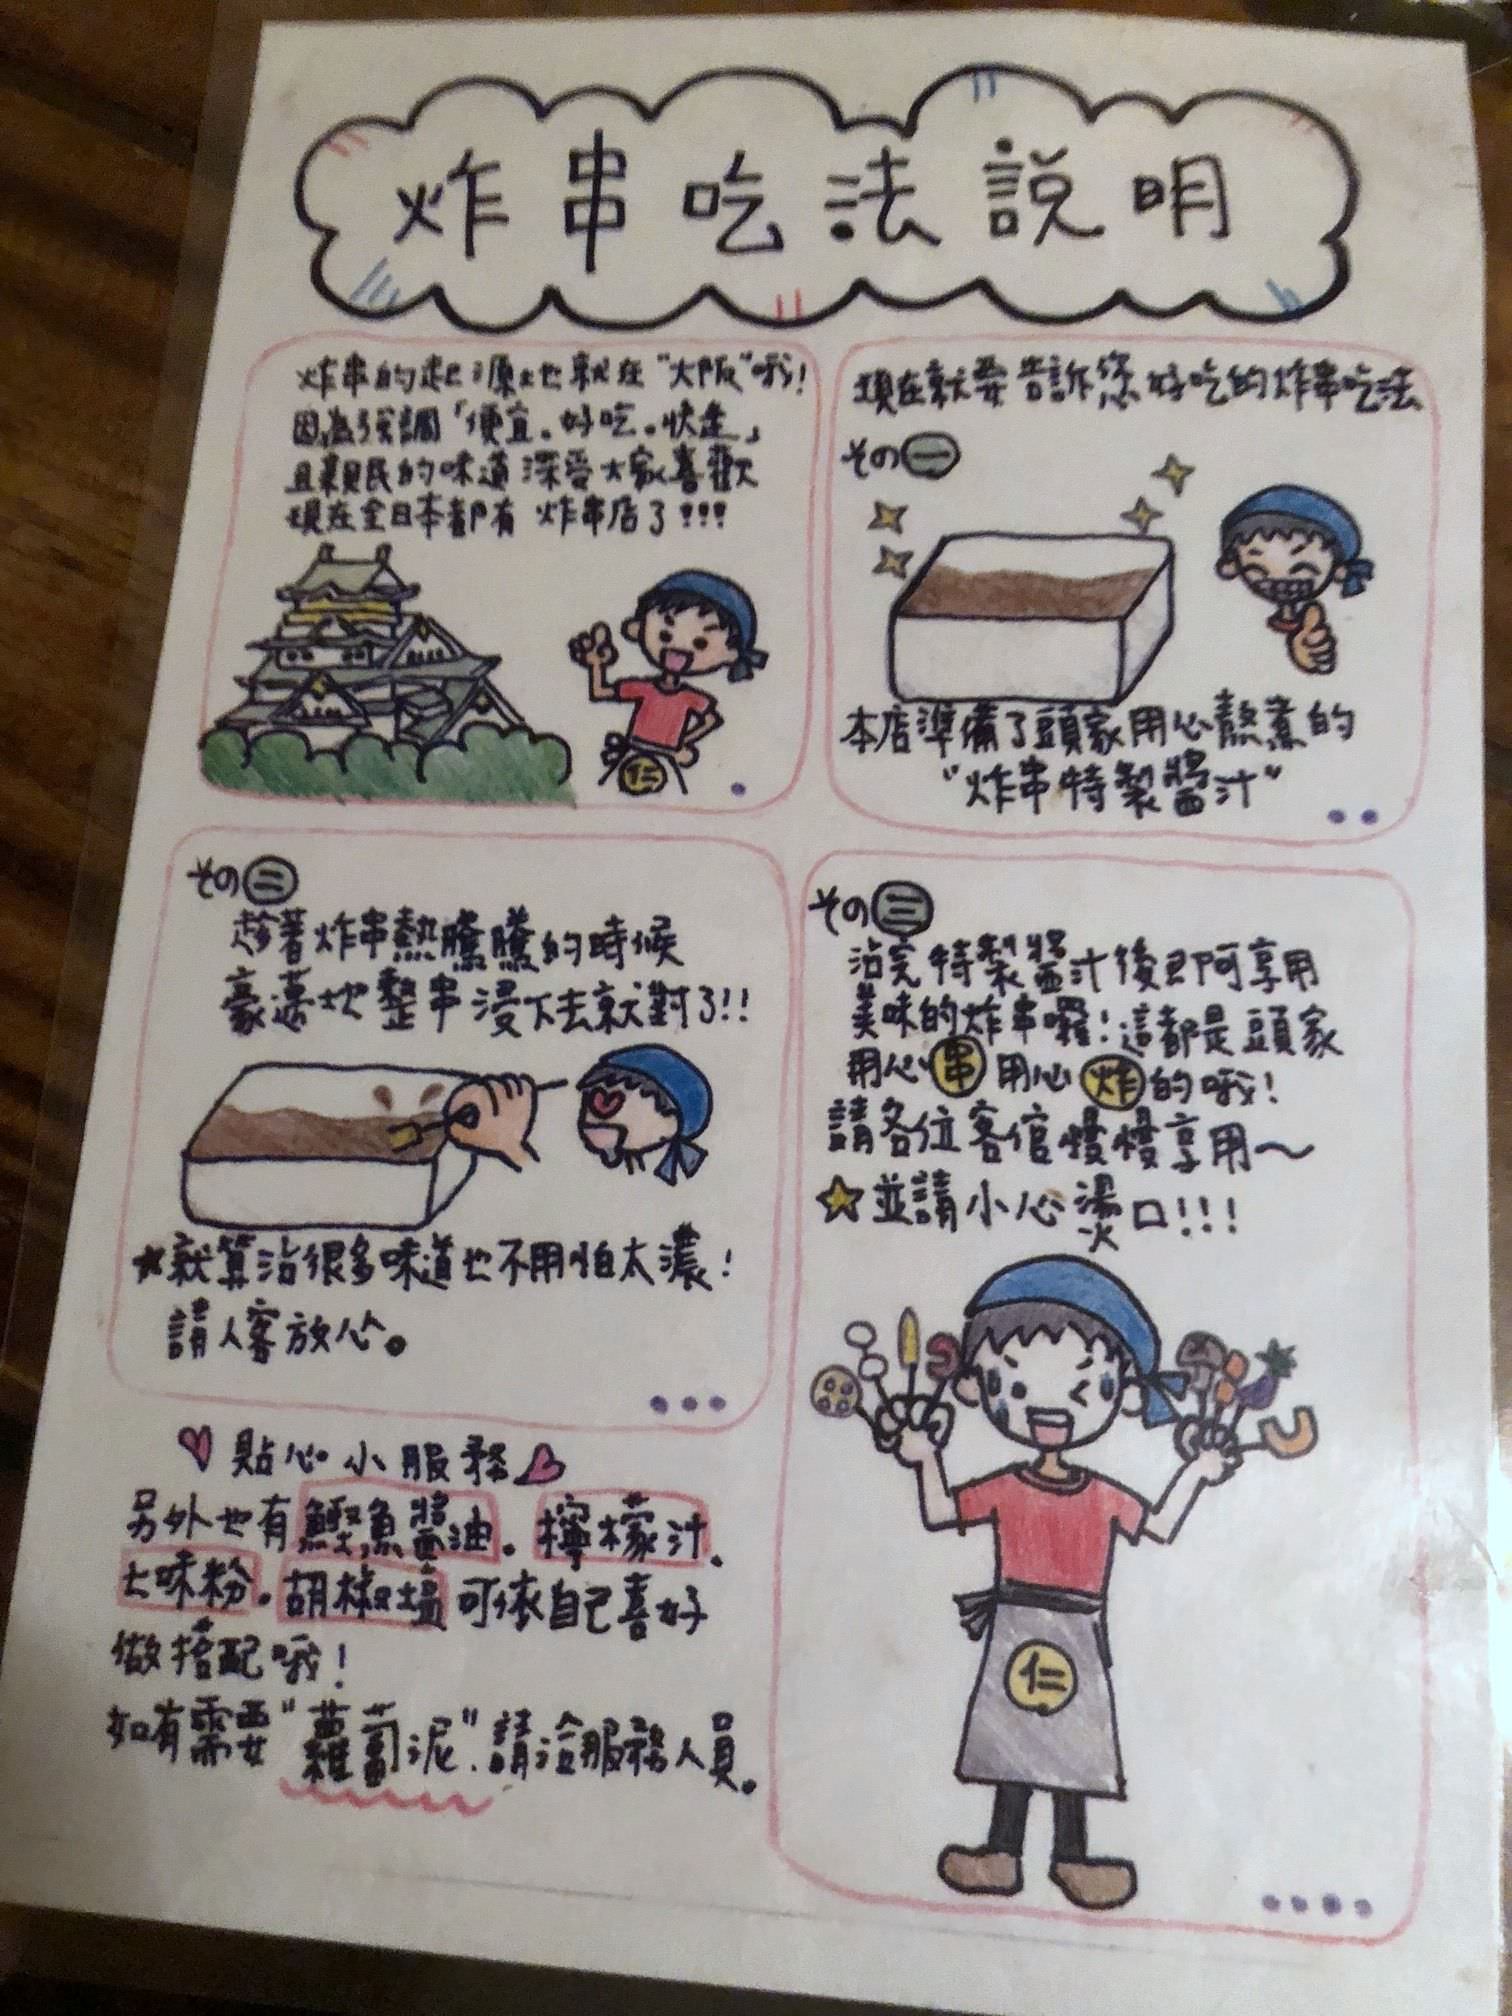 炸串吃法説明
炸串的起源地就在"大阪"哦!
因為強調「便宜。好吃。快速」
且親民的味道深受大家喜歡
現在全日本都有 炸串店了!!!
仁
現在就要告訴您好吃的炸串吃法
その一
本店準備了頭家用心熬煮的
"炸串特製醬汁"
その二
趁著炸串熱騰騰的時候
豪邁地整串浸下去就對了!!
★就算沾很多味道也不用怕太濃!
請人客放心。
その三
沾完特製醬汁後即可享用
美味的炸串囉!這都是頭家
用心串用心炸的哦!
請各位客倌慢慢享用~
★並請小心燙口!!!
仁
♥貼心小服務♥
另外也有鰹魚醬油。檸檬汁、
七味粉。胡椒塩可依自己喜好
做搭配哦!
如有需要"蘿蔔泥"請洽服務人員。